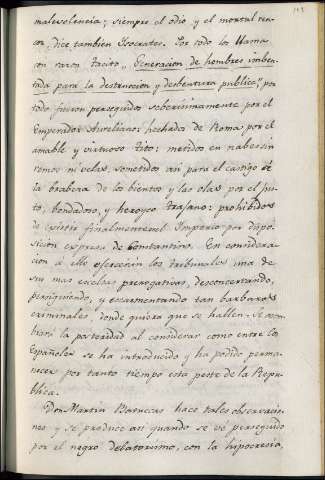 malevolencia; siempre el odio y el mortal ren-
cor, dice tambien Ysocrates. Por todo lo llama
con razon Tacito, Generacion de hombres imben-
tada para la destruccion y desbentura publica", por
todo fueron perseguidos seberisimamente por el
Emperador Aureliano: hechados de Roma por el
amable y virtuoso Tito: metidos en nabes sin
remos ni velas, sometidos asi para el castigo à
la brabeza de los bientos y las olas por el jus-
to, bondadoso, y heroyco Trajano: prohibidos
de existir finalmente en el Imperio por dispo-
sicion expresa de Constantino. En considera-
cion à ello esercerán los tribunales una de
sus mas escelsas prerogativas, desconcertando,
persiguiendo, y escarmentando tan barbaros
criminales, donde quiera que se hallen. Se asom-
brará la posteridad al considerar como entre los
Españoles se ha introducido y ha podido perma-
necer por tanto tiempo esta peste de la Repu-
blica.
Don Martin Batuecas hace tales observacio-
nes y se produce asi quando se vé perseguido
por el negro delatorismo, con la hipocresia,